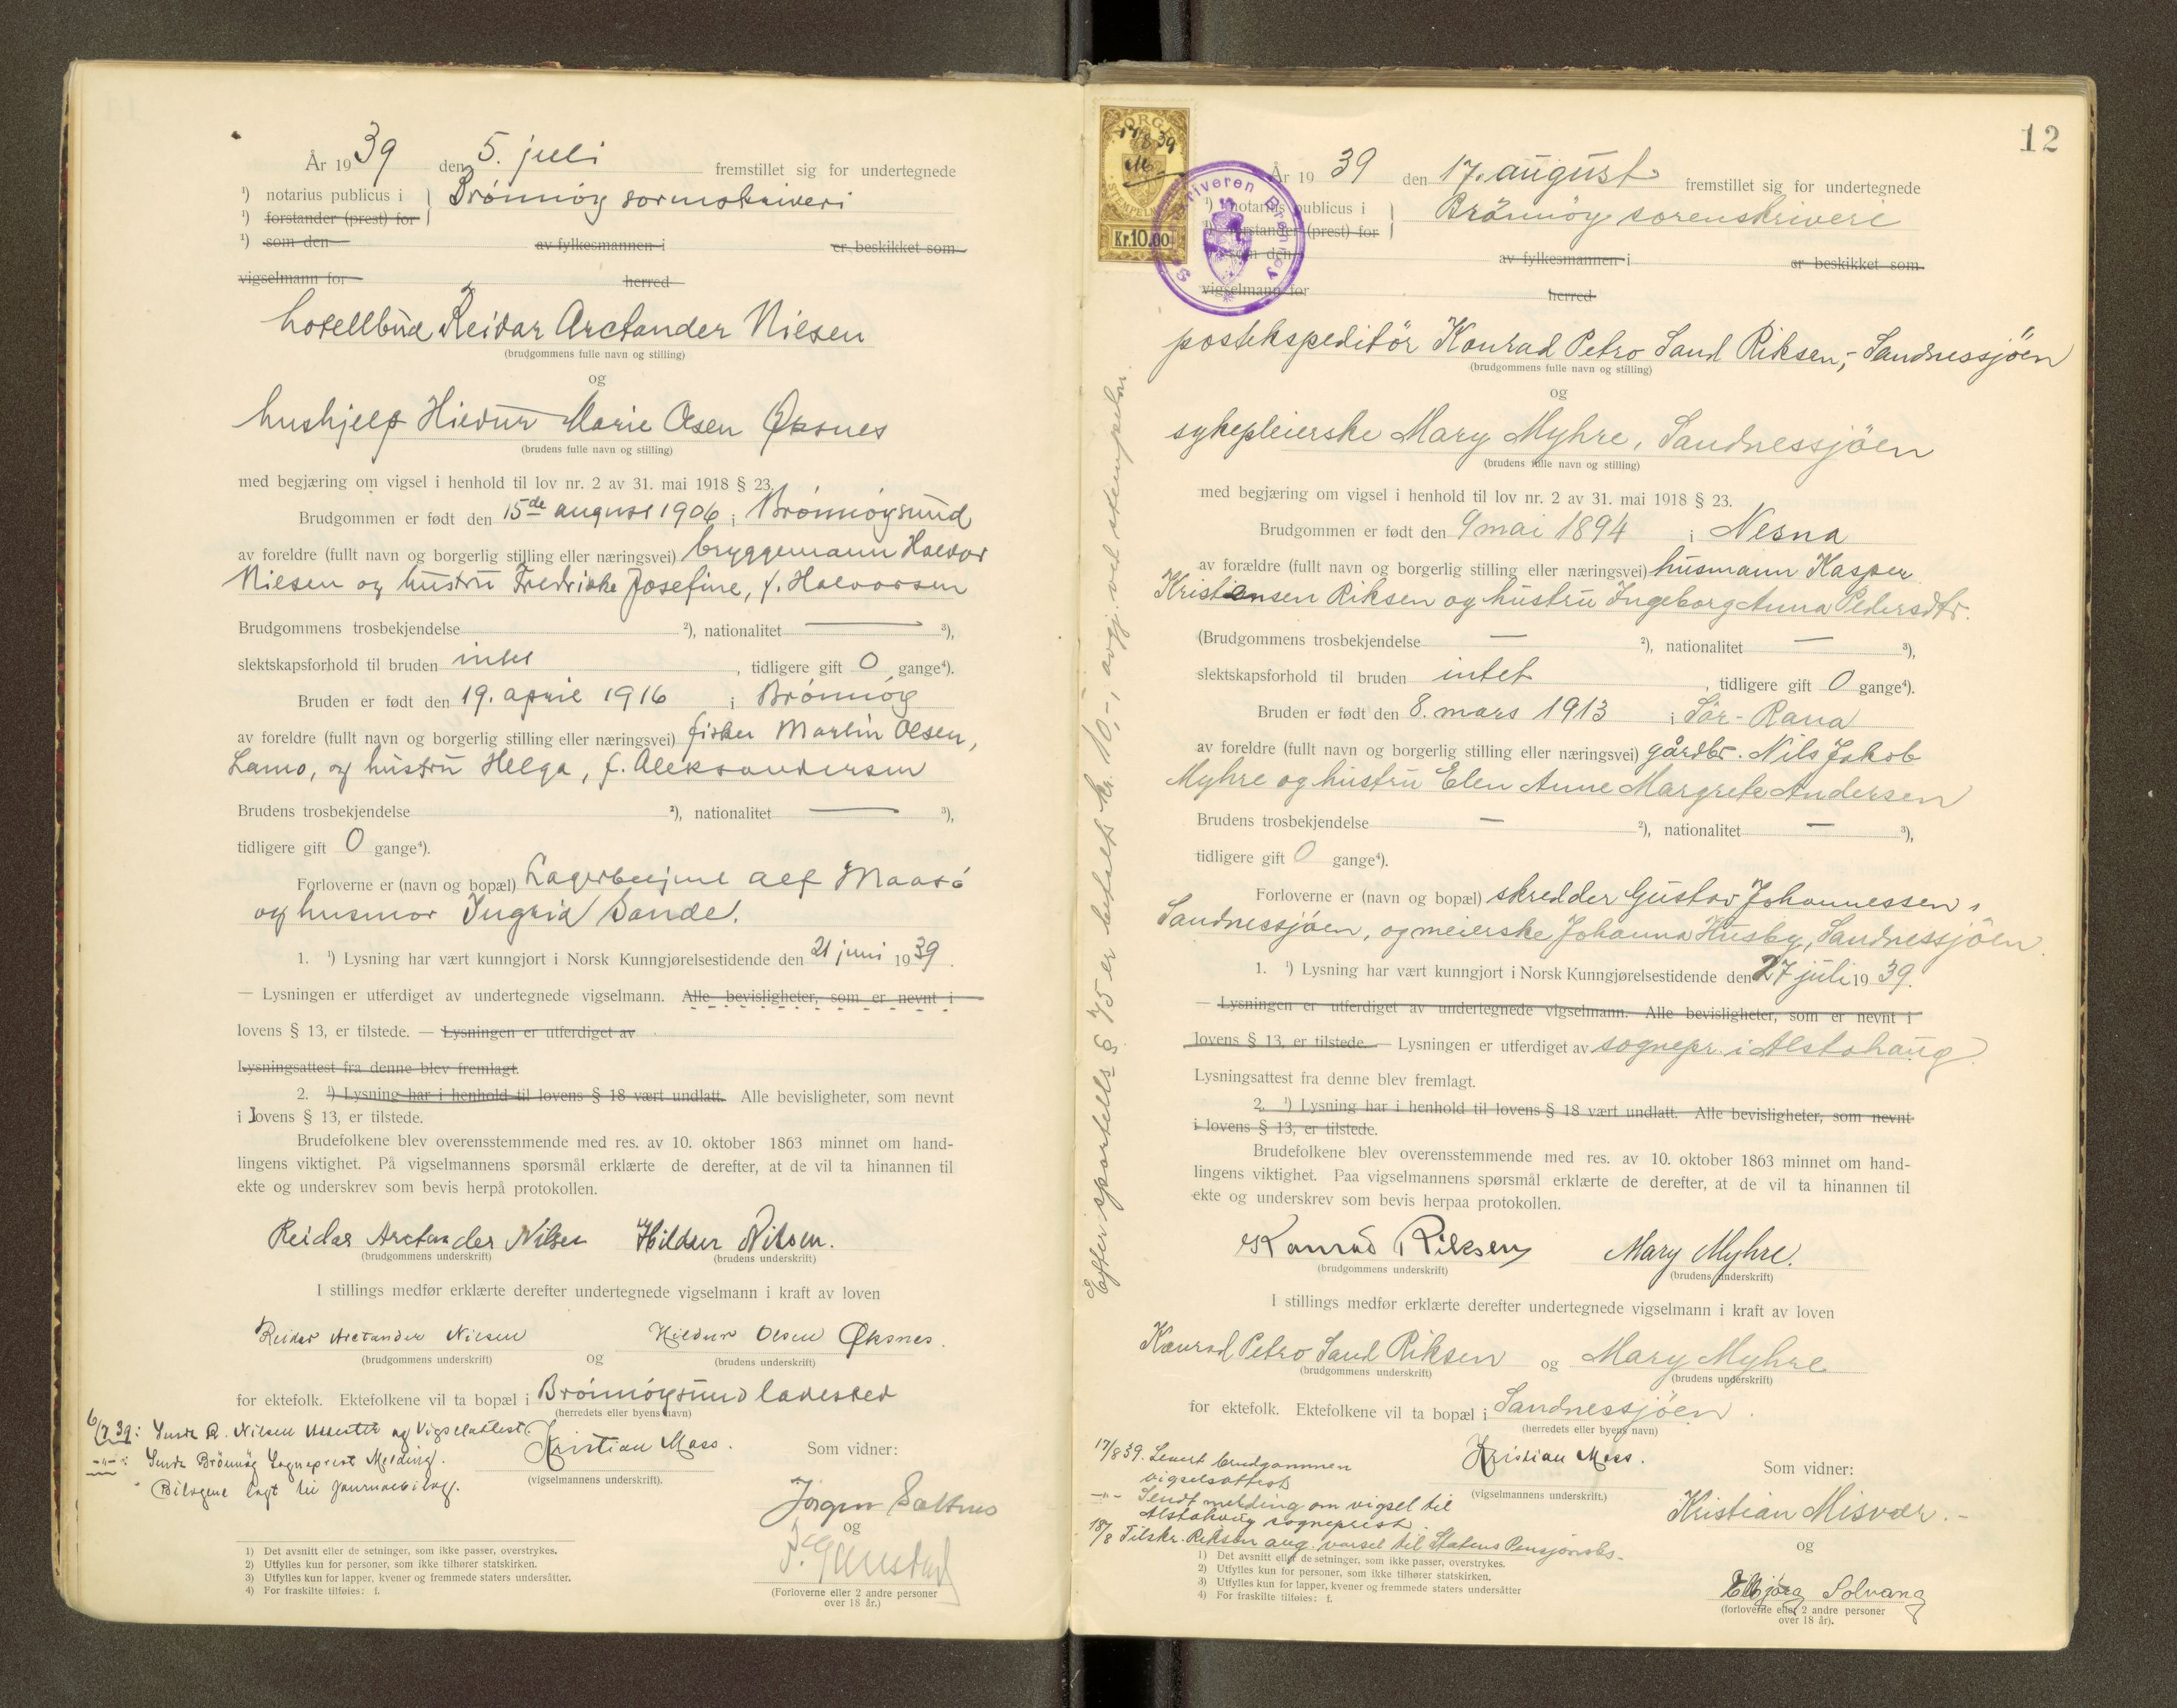 År 1939 den 5. juli fremstillet sig for undertegnede
¹) notarius publicus i } Brønnøy sorenskriveri
¹) forstander (prest) for
¹) som den av fylkesmannen i er beskikket som
vigselmann for herred
hotellbud Reidar Arctander Nilsen
(brudgommens fulle navn og stilling)
og
hushjelp Hildur Marie Olsen Øksnes
(brudens fulle navn og stilling)
med begjæring om vigsel i henhold til lov nr. 2 av 31. mai 1918 § 23.
Brudgommen er født den 15de august 1906 i Brønnøysund
av foreldre (fullt navn og borgerlig stilling eller næringsvei) bryggemann Haldor
Nilsen og hustru Fredrikke Josefine, f. Halvorsen
Brudgommens trosbekjendelse ²), nationalitet — ³),
slektskapsforhold til bruden intet, tidligere gift 0 gange⁴).
Bruden er født den 19. april 1916 i Brønnøy
av foreldre (fullt navn og borgerlig stilling eller næringsvei) fisker Martin Olsen,
Lamo, og hustru Helga, f. Aleksandersen
Brudens trosbekjendelse ²), nationalitet — ³),
tidligere gift 0 gange⁴).
Forloverne er (navn og bopæl) Lagerbetjent Alf Maasø
og husmor Ingrid Sande.
1. ¹) Lysning har vært kunngjort i Norsk Kunngjørelsestidende den 21 juni 1939.
— Lysningen er utferdiget av undertegnede vigselmann. Alle bevisligheter, som er nevnt i
lovens § 13, er tilstede. — Lysningen er utferdiget av
Lysningsattest fra denne blev fremlagt.
2. ¹) Lysning har i henhold til lovens § 18 vært undlatt. Alle bevisligheter, som nevnt
i lovens § 13, er tilstede.
Brudefolkene blev overensstemmende med res. av 10. oktober 1863 minnet om hand-
lingens viktighet. På vigselmannens spørsmål erklærte de derefter, at de vil ta hinannen til
ekte og underskrev som bevis herpå protokollen.
Reidar Arctander Nilsen Hildur Nilsen.
(brudgommens underskrift) (brudens underskrift)
I stillings medfør erklærte derefter undertegnede vigselmann i kraft av loven
Reidar Arctander Nilsen Hildur Olsen Øksnes.
(brudgommens underskrift) og (brudens underskrift)
for ektefolk. Ektefolkene vil ta bopæl i Brønnøysund ladested
(herredets eller byens navn)
6/7 39: Sendt R. Nilsen attester og Vigselattest.
—"—: Sendt Brønnøy Sogneprest Melding.
" Bilagene lagt til journalbilag.
Kristian Moss.
(vigselmannens underskrift).
Som vidner:
Jørgen Sættnes
og
(Forloverne eller 2 andre personer
over 18 år.)
1) Det avsnitt eller de setninger, som ikke passer, overstrykes.
2) Utfylles kun for personer, som ikke tilhører statskirken.
3) Utfylles kun for lapper, kvener og fremmede staters undersåtter.
4) For fraskilte tilføies: f.
12
NORGE
17/8 39
M.
STEMPELMERKE
Kr.10.00
Sorenskriveren Brønnøy
År 1939 den 17. august fremstillet sig for undertegnede
¹) notarius publicus i } Brønnøy sorenskriveri
¹) forstander (prest) for
som den av fylkesmannen i er beskikket som
vigselmann for herred
postekspeditør Konrad Petro Sand Riksen, - Sandnessjøen
(brudgommens fulle navn og stilling)
og
sykepleierske Mary Myhre, Sandnessjøen
(brudens fulle navn og stilling)
med begjæring om vigsel i henhold til lov nr. 2 av 31. mai 1918 § 23.
Brudgommen er født den 9 mai 1894 i Nesna
av forældre (fullt navn og borgerlig stilling eller næringsvei) husmann Kasper
Kristiansen Riksen og hustru Ingeborg Anna Pedersdtr.
(Brudgommens trosbekjendelse — ²), nationalitet — ³),
slektskapsforhold til bruden intet, tidligere gift 0 gange⁴).
Bruden er født den 8. mars 1913 i Sør-Rana
av foreldre (fullt navn og borgerlig stilling eller næringsvei) gårdbr. Nils Jakob
Myhre og hustru Elen Anne Margrete Andersen
Brudens trosbekjendelse — ²), nationalitet — ³),
tidligere gift 0 gange⁴).
Forloverne er (navn og bopæl) skredder Gustav Johannessen,
Sandnessjøen, og meierske Johanna Husby, Sandnessjøen.
1. ¹) Lysning har vært kunngjort i Norsk Kunngjørelsestidende den 27 juli 1939.
— Lysningen er utferdiget av undertegnede vigselmann. Alle bevisligheter, som er nevnt i
lovens § 13, er tilstede. — Lysningen er utferdiget av sognepr. i Alstahaug
Lysningsattest fra denne blev fremlagt.
2. ¹) Lysning har i henhold til lovens § 18 vært undlatt. Alle bevisligheter, som nevnt
i lovens § 13, er tilstede.
Brudefolkene blev overensstemmende med res. av 10. oktober 1863 minnet om hand-
lingens viktighet. Paa vigselmannens spørsmål erklærte de derefter, at de vil ta hinannen til
ekte og underskrev som bevis herpaa protokollen.
Konrad Riksen Mary Myhre.
(brudgommens underskrift) (brudens underskrift)
I stillings medfør erklærte derefter undertegnede vigselmann i kraft av loven
Konrad Petro Sand Riksen og Mary Myhre
(brudgommens underskrift) (brudens underskrift)
for ektefolk. Ektefolkene vil ta bopæl i Sandnessjøen.
(herredets eller byens navn)
17/8 39. Levert brudgommen
vigselsattest
—"— Sendt melding om vigsel til
Alstahaug sogneprest
18/8 Tilskr. Riksen ang. varsel til Statens Pensjonsks-
Kristian Moss.
(vigselmannens underskrift.)
Som vidner:
Kristian Misvær. -
og
Ellbjørg Solvang
(forloverne eller 2 andre personer
over 18 år).
1) Det avsnitt eller de setninger, som ikke passer, overstrykes.
2) Utfylles kun for personer, som ikke tilhører statskirken.
3) Utfylles kun for lapper, kvener og fremmede staters undersåtter
4) For fraskilte tilføies: f.
Efter sportells § 75 er betalt kr. 10,-, avgj. ved stempelm.